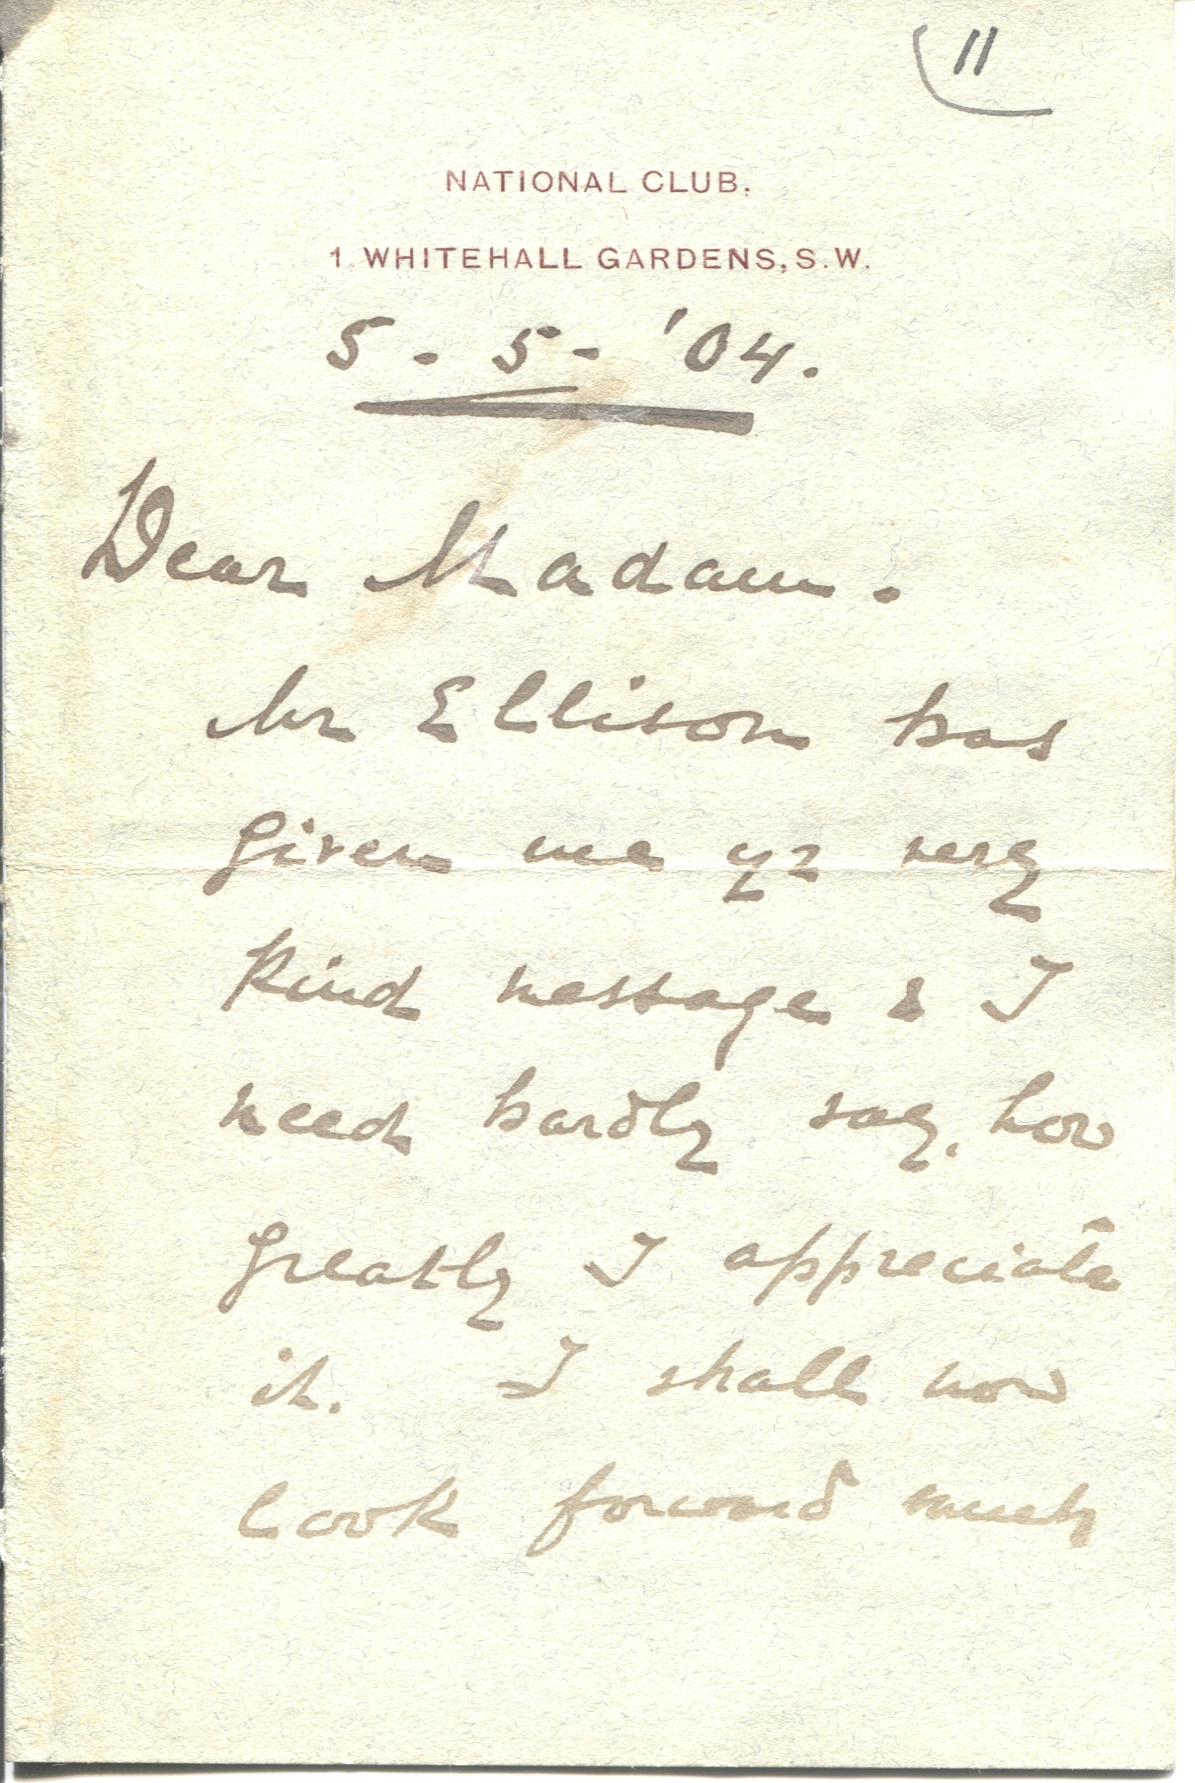 11
NATIONAL CLUB.
1. WHITEHALL GARDENS, S.W.
5 - 5 - '04.
Dear Madam.
Mr Ellison has
given me yr very
kind message & I
need hardly say, how
greatly I appreciate
it. I shall now
look forward much